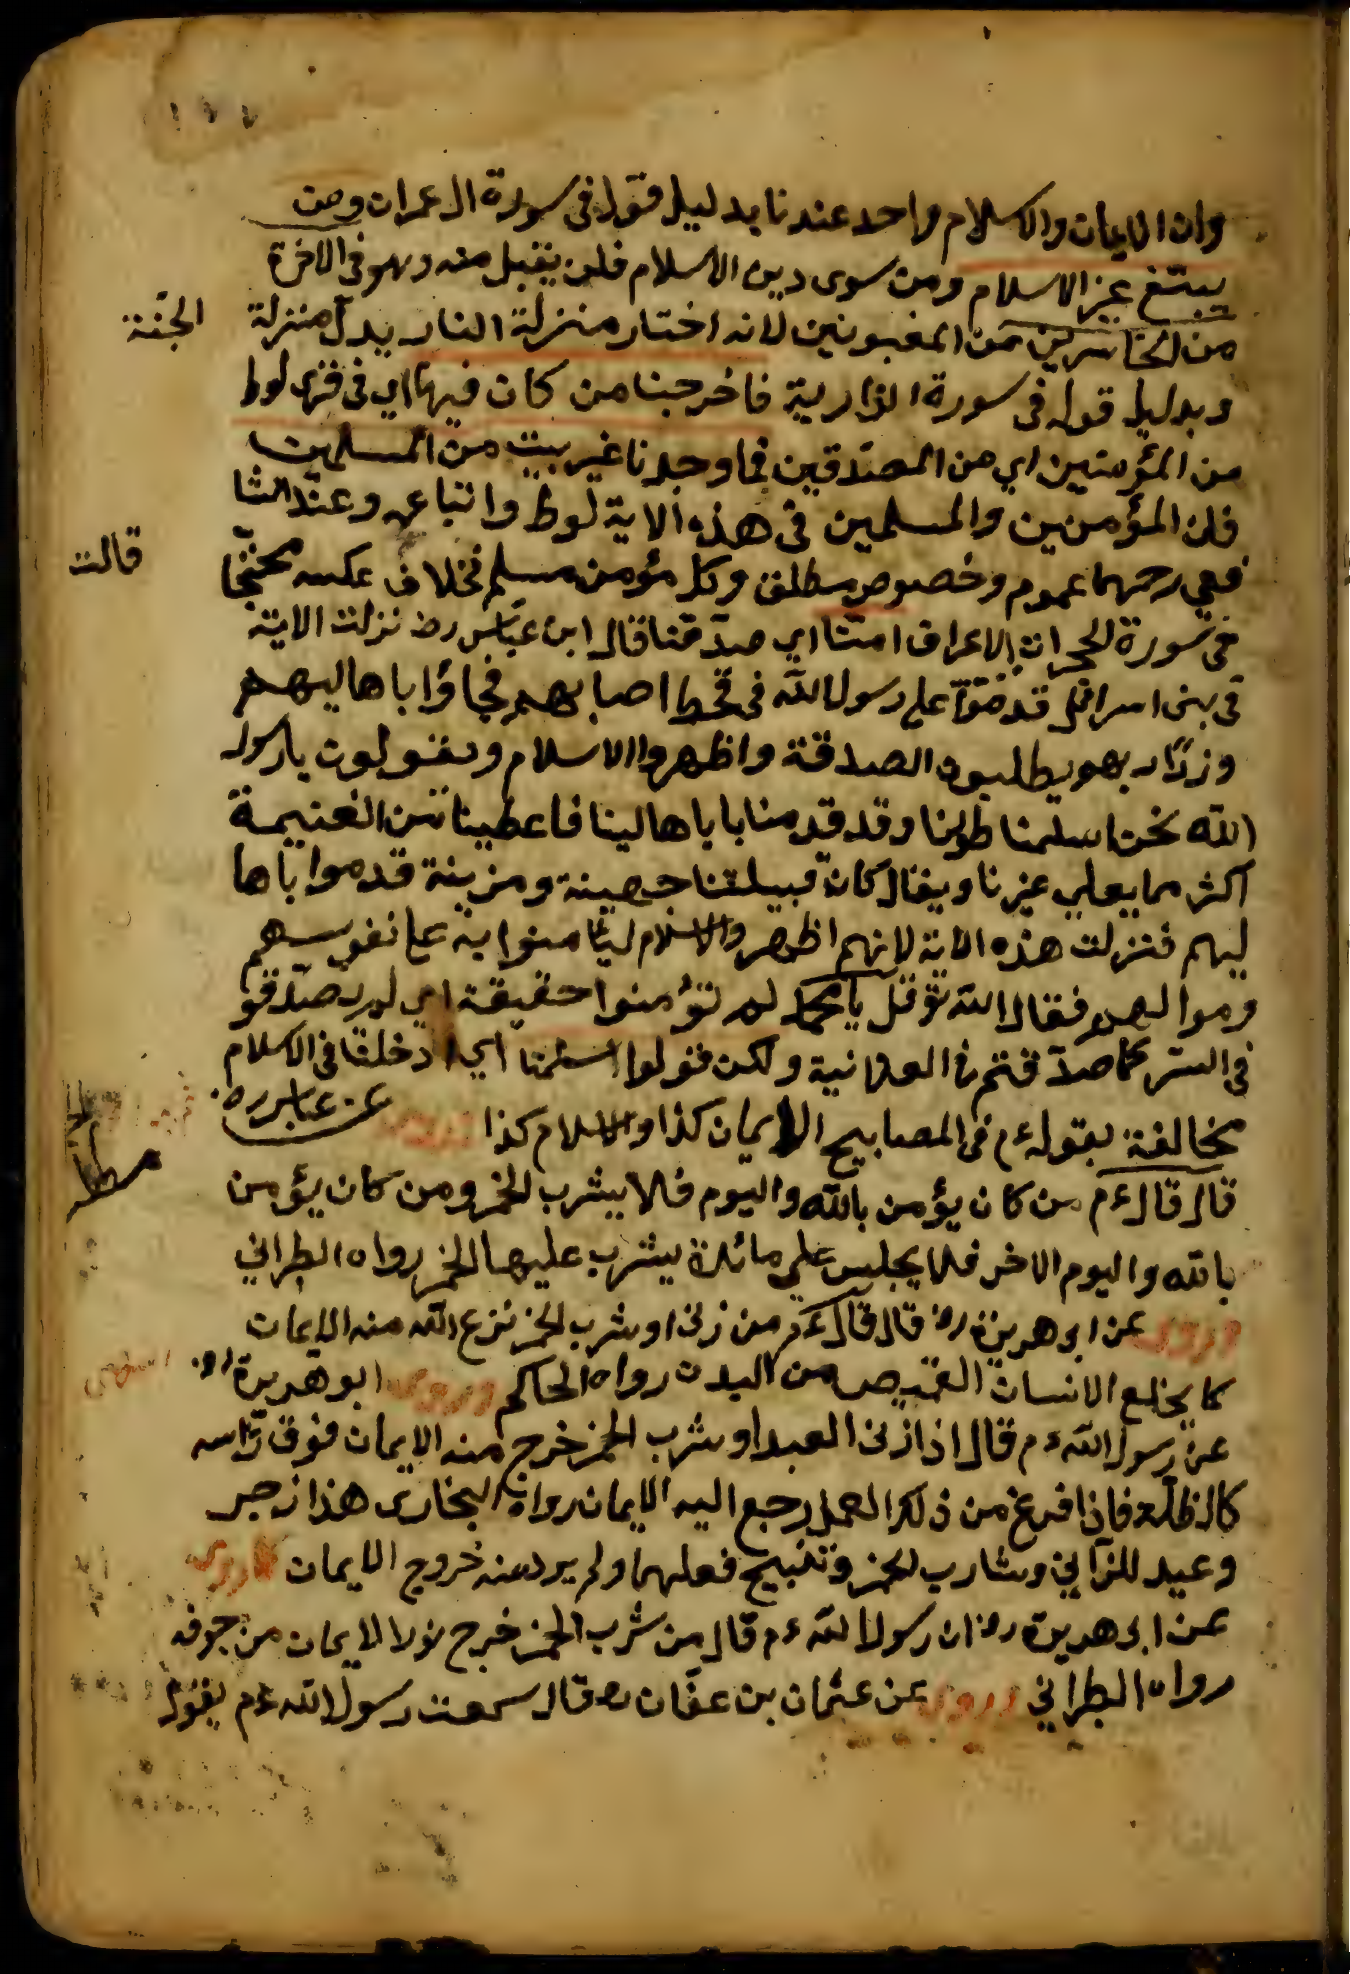 وان الايمان والاسلام واحد عندنا بدليل قوله فى سورة ال عمران ومن
يبتغ غير الاسلام ومن سوى دين الاسلام فلن يقبل منه وهو فى الاخرة
من الخاسرين من المغبونين لانه اختار منزلة النار بدل منزلة
الجنّة
وبدليل قوله فى سورة الذاريه فاخرجنا من كان فيها اي فى قرى لوط
من المؤمنين اي من المصدّقين فما وجدنا غير بيت من المسلمين
فان المؤمنين والمسلمين فى هذه الاية لوط واتباعه وعند الشا
فعي رحمهما عموم وخصوص مطلق وكل مؤمن مسلم بخلاف عكسه محتجّا
قالت
فى سورة الحجرات الاعراف امنّا اي صدّقنا قال ابن عبّاس رض نزلت الاية
فى بنى اسرائل قدموا على رسول الله فى قحط اصابهم فجاؤا باهاليهم
يطلبون الصدقة واظهروا الاسلام ويقولون يارسول
الله نحن اسلمنا وقد قدمنا باهالينا فاعطينا من الغنيمة
اكثر مما يعطي غيرنا ويقال كان قبيلتنا جهينة ومزينة قدموا باها
ليهم فنزلت هذه الاية لانهم اظهروا الاسلام ليامنوا به على نفوسهم
وموالهم فقال الله تع قل يا محمد لم تؤمنوا حقيقة اي لم تصدّقو
فى السّر كما صدّقتم فى العلانية ولكن قولوا اسلمنا اي دخلنا فى الاسلام
مخالفة بقوله ءم فى المصابيح الايمان كذا والاسلام كذا عن عباس رض
قال قال ءم من كان يؤمن بالله واليوم فلا يشرب الخمر ومن كان يؤمن
بالله واليوم الاخر فلا يجلس على مائدة يشرب عليها الخمر رواه الطبراني
وروى عن ابى هريرة رض قال قال ءم من زنى او شرب الخمر نزع الله منه الايمان
كما يخلع الانسان القميص من البدن رواه الحاكم وروى ابو هريرة رض
عن رسول الله ءم قال اذا زنى العبد او شرب الخمر خرج منه الايمان فوق رأسه
كالظلّة فاذا فرغ من ذلك العمل رجع اليه الايمان رواه البخارى هذا زجر
وعيد للزّاني وشارب الخمر وتقبيح فعلهما ولم يرد منه خروج الايمان وروى
عن ابى هريرة رض ان رسول الله ءم قال من شرب الخمر خرج نور الايمان من جوفه
رواه الطبراني وروى عن عثمان بن عفّان رض قال سمعت رسول الله ءم يقول